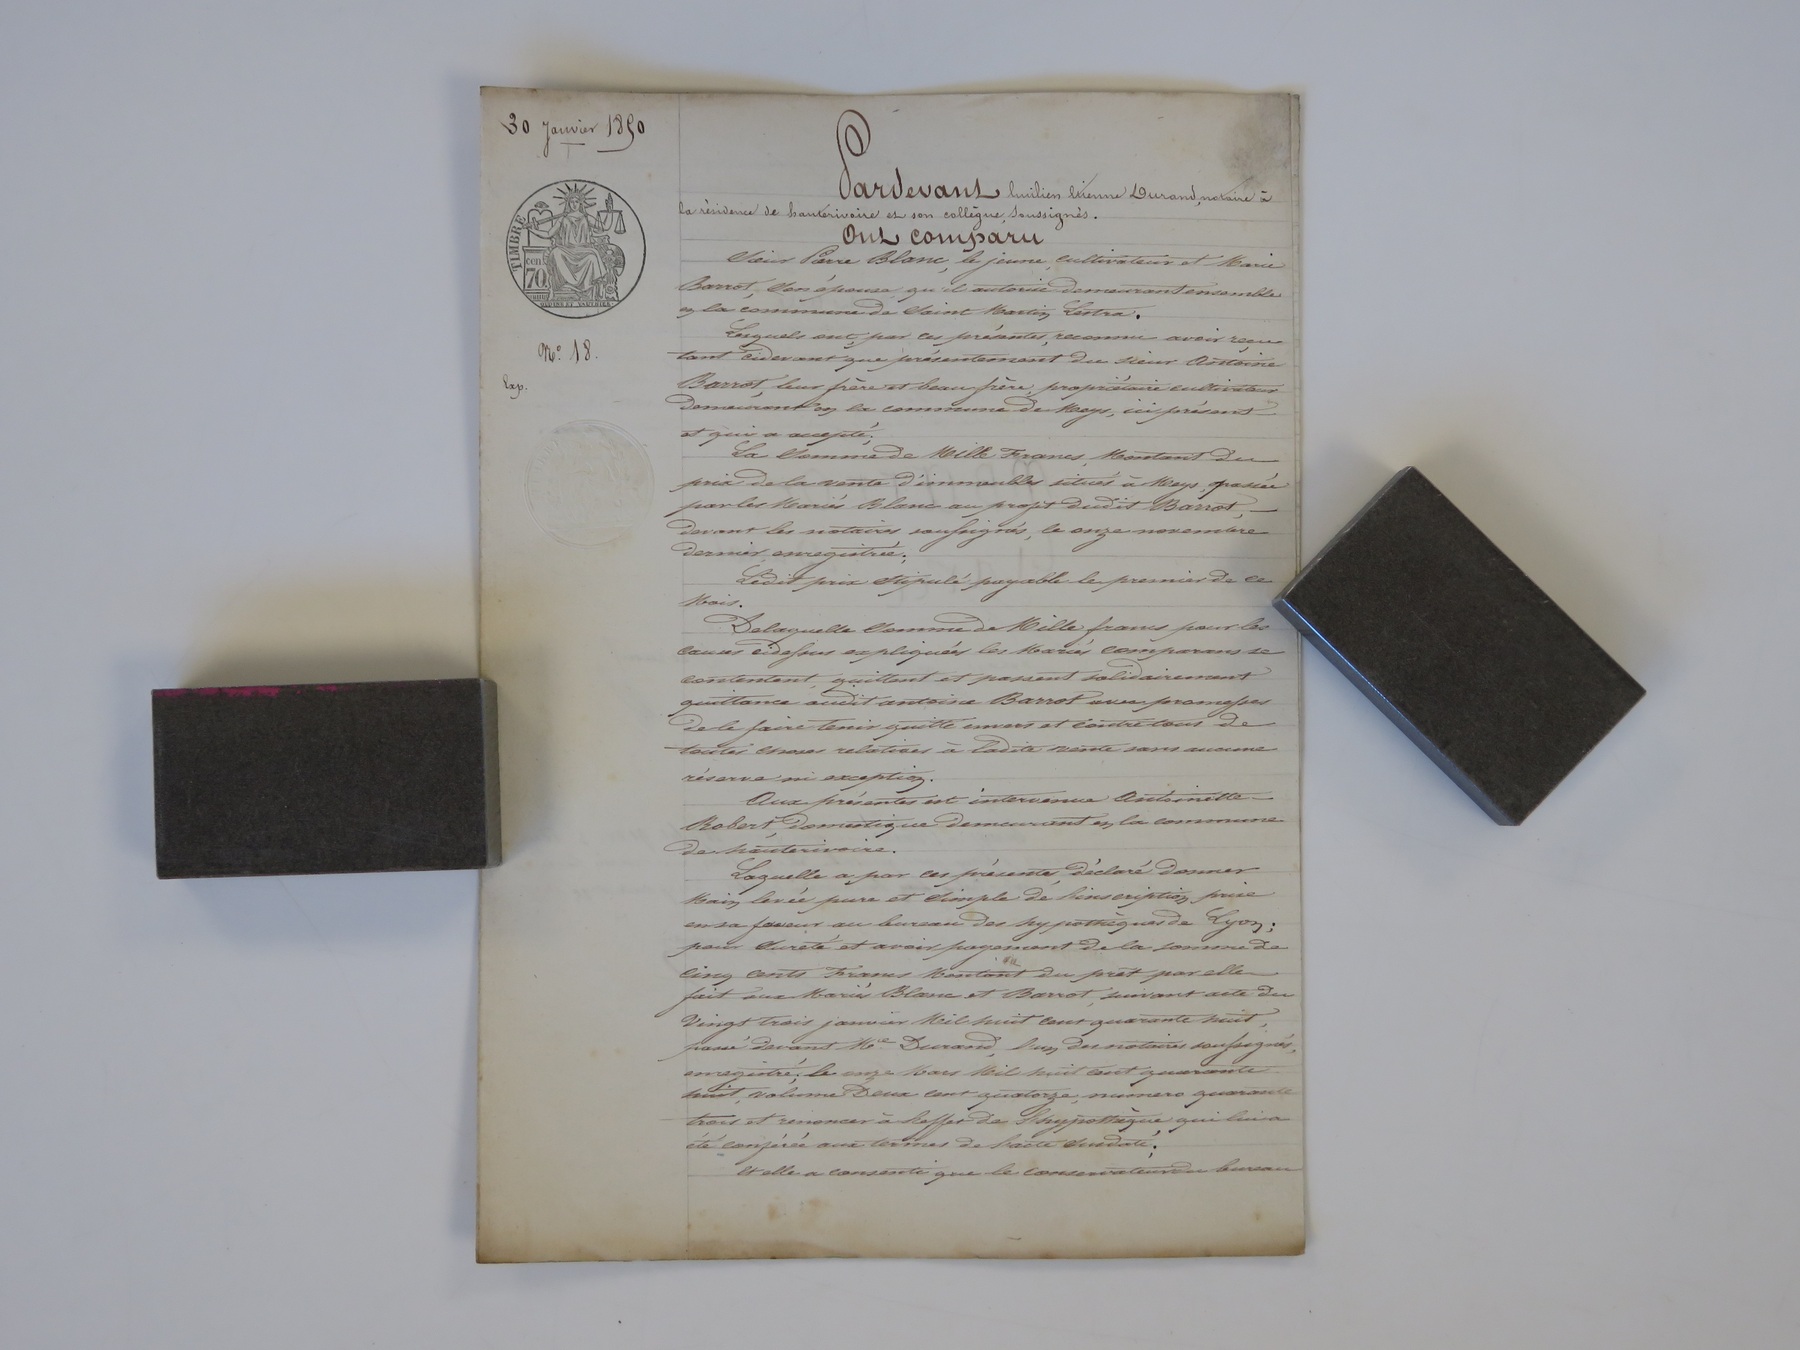 30 Janvier 1850
TIMBRE
cen.
70.
N.° 18.
Exp.
Pardevant Emilien Etienne Durand, notaire à
la résidence de hauterivoire et son collègue, soussignés.
Ont comparu
Sieur Pierre Blanc, le jeune, cultivateur et Marie
Barrot, son épouse qu'il autorise demeurant ensemble
en la commune de Saint Martin Lestra.
Lesquels ont, par ces présentes, reconnu avoir reçu
tant cidevant que présentement du sieur Antoine
Barrot, leur frère et beau frère, propriétaire cultivateur
demeurant en la commune de Meys, ici présent
et qui a accepté;
La Somme de Mille Francs, Montant du
prix de la vente d'immeubles situés à Meys, passée
par les Mariés Blanc au profit dudit Barrot,
devant les notaires soussignés, le onze novembre
dernier, enregistrée;
Ledit prix stipulé payable le premier de ce
Mois.
Delaquelle Somme de Mille francs pour les
causes cidessus expliquées les Mariés comparans se
contentent, quittent et passent solidairement
quittance audit antoine Barrot avec promesses
de le faire tenir quitte envers et contre tous de
toutes choses relatives à ladite vente sans aucune
réserve ni exception.
Aux présentes est intervenue Antoinette
Robert, domestique demeurant en la commune
de hauterivoire.
Laquelle a par ces présentes, déclaré donner
Main levée pure et simple de l'inscription prise
en sa faveur au bureau des hypothèques de Lyon;
pour sureté et avoir payement de la somme de
cinq cents Francs Montant du prêt par elle
fait aux Mariés Blanc et Barrot, suivant acte du
vingt trois janvier Mil huit cent quarante huit,
passé devant M.e Durand, l'un des notaires soussignés,
enregistré; le onze Mars Mil huit cent quarante
huit, volume Deux cent quatorze, numero quarante
trois et renoncer à l'effet de l'hypothèque qui lui a
été conférée aux termes de l'acte susdaté;
Et elle a consenti que le conservateur du bureau